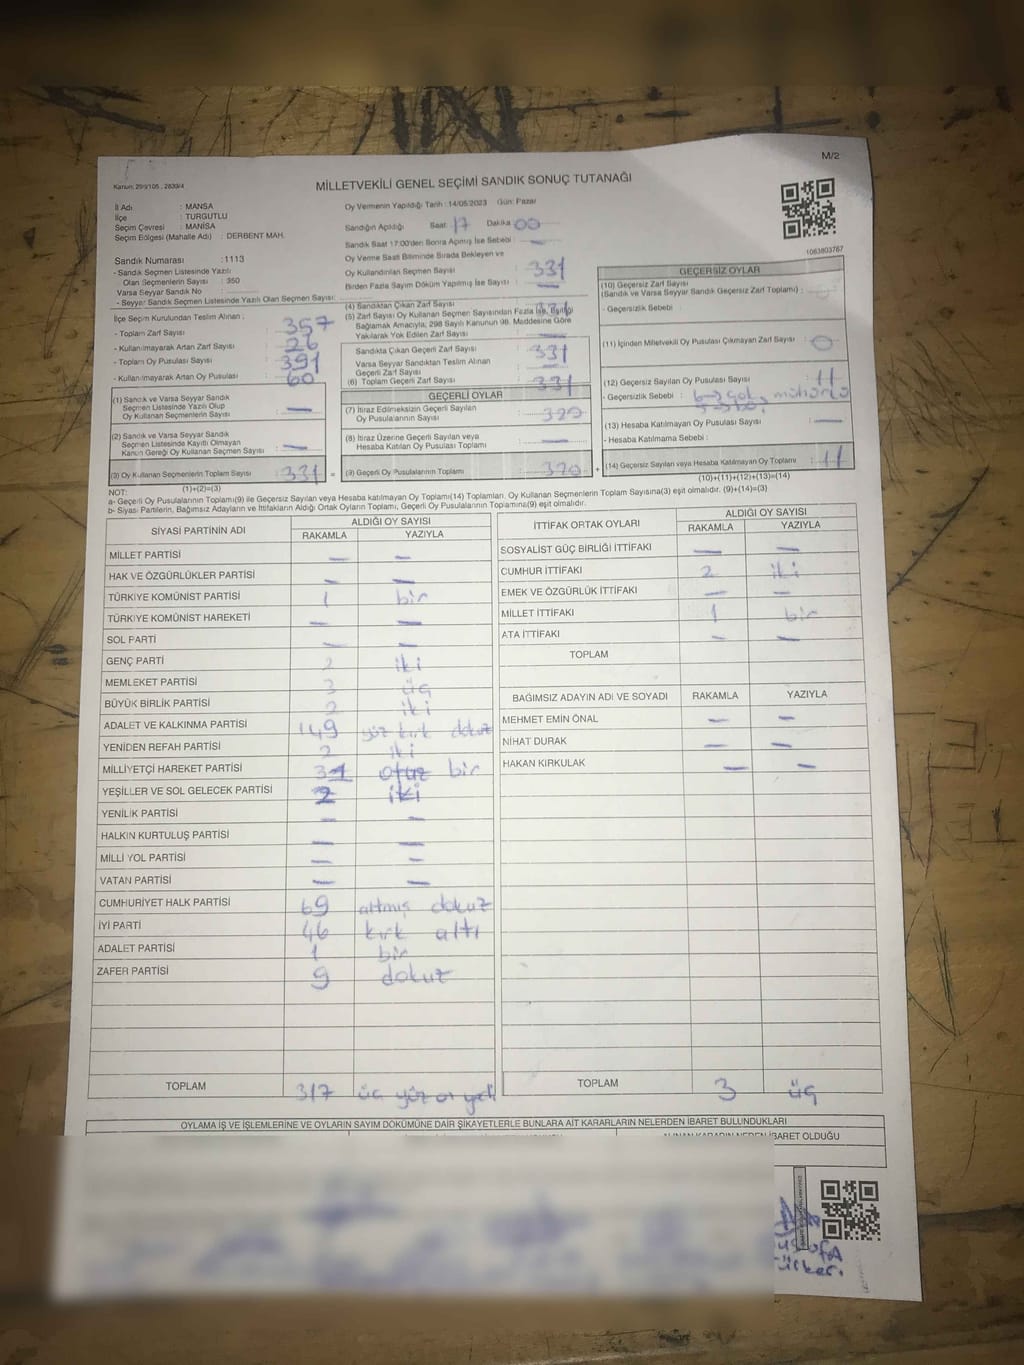 M/2
Kanun: 299/105 , 2839/4
MİLLETVEKİLİ GENEL SEÇİMİ SANDIK SONUÇ TUTANAĞI
İl Adı : MANİSA
İlçe : TURGUTLU
Seçim Çevresi : MANİSA
Seçim Bölgesi (Mahalle Adı) : DERBENT MAH.
Sandık Numarası : 1113
- Sandık Seçmen Listesinde Yazılı
Olan Seçmenlerin Sayısı : 350
Varsa Seyyar Sandık No
- Seyyar Sandık Seçmen Listesinde Yazılı Olan Seçmen Sayısı:
Oy Vermenin Yapıldığı Tarih : 14/05/2023 Gün: Pazar
Sandığın Açıldığı Saat: 17 Dakika 00
Sandık Saat 17:00'den Sonra Açılmış İse Sebebi : —
Oy Verme Saati Bitiminde Sırada Bekleyen ve
Oy Kullandırılan Seçmen Sayısı : 331
Birden Fazla Sayım Döküm Yapılmış İse Sayısı : —
1083803787
İlçe Seçim Kurulundan Teslim Alınan :
- Toplam Zarf Sayısı : 357
- Kullanılmayarak Artan Zarf Sayısı : 26
- Toplam Oy Pusulası Sayısı : 391
- Kullanılmayarak Artan Oy Pusulası : 60
(1) Sandık ve Varsa Seyyar Sandık
Seçmen Listesinde Yazılı Olup
Oy Kullanan Seçmenlerin Sayısı : —
(2) Sandık ve Varsa Seyyar Sandık
Seçmen Listesinde Kayıtlı Olmayan
Kanun Gereği Oy Kullanan Seçmen Sayısı : —
(3) Oy Kullanan Seçmenlerin Toplam Sayısı : 331 =
(1)+(2)=(3)
(4) Sandıktan Çıkan Zarf Sayısı : 331
(5) Zarf Sayısı Oy Kullanan Seçmen Sayısından Fazla İse, Eşitliği
Bağlamak Amacıyla, 298 Sayılı Kanunun 98. Maddesine Göre
Yakılarak Yok Edilen Zarf Sayısı : —
Sandıkta Çıkan Geçerli Zarf Sayısı : 331
Varsa Seyyar Sandıktan Teslim Alınan
Geçerli Zarf Sayısı : —
(6) Toplam Geçerli Zarf Sayısı : 331
GEÇERLİ OYLAR
(7) İtiraz Edilmeksizin Geçerli Sayılan
Oy Pusulalarının Sayısı : 320
(8) İtiraz Üzerine Geçerli Sayılan veya
Hesaba Katılan Oy Pusulası Toplamı : —
(9) Geçerli Oy Pusulalarının Toplamı : 320 +
GEÇERSİZ OYLAR
(10) Geçersiz Zarf Sayısı
(Sandık ve Varsa Seyyar Sandık Geçersiz Zarf Toplamı) :
- Geçersizlik Sebebi :
(11) İçinden Milletvekili Oy Pusulası Çıkmayan Zarf Sayısı : 0
(12) Geçersiz Sayılan Oy Pusulası Sayısı : 11
- Geçersizlik Sebebi : 6 çok mühürlü
(13) Hesaba Katılmayan Oy Pusulası Sayısı : —
- Hesaba Katılmama Sebebi :
(14) Geçersiz Sayılan veya Hesaba Katılmayan Oy Toplamı : 11
(10)+(11)+(12)+(13)=(14)
NOT:
a- Geçerli Oy Pusulalarının Toplamı(9) ile Geçersiz Sayılan veya Hesaba katılmayan Oy Toplamı(14) Toplamları, Oy Kullanan Seçmenlerin Toplam Sayısına(3) eşit olmalıdır. (9)+(14)=(3)
b- Siyasi Partilerin, Bağımsız Adayların ve İttifakların Aldığı Ortak Oyların Toplamı, Geçerli Oy Pusulalarının Toplamına(9) eşit olmalıdır.
SİYASİ PARTİNİN ADI ALDIĞI OY SAYISI
RAKAMLA YAZIYLA
MİLLET PARTİSİ — —
HAK VE ÖZGÜRLÜKLER PARTİSİ — —
TÜRKİYE KOMÜNİST PARTİSİ 1 bir
TÜRKİYE KOMÜNİST HAREKETİ — —
SOL PARTİ — —
GENÇ PARTİ 2 iki
MEMLEKET PARTİSİ 3 üç
BÜYÜK BİRLİK PARTİSİ 2 iki
ADALET VE KALKINMA PARTİSİ 149 yüz kırk dokuz
YENİDEN REFAH PARTİSİ 2 iki
MİLLİYETÇİ HAREKET PARTİSİ 31 otuz bir
YEŞİLLER VE SOL GELECEK PARTİSİ 2 iki
YENİLİK PARTİSİ — —
HALKIN KURTULUŞ PARTİSİ — —
MİLLİ YOL PARTİSİ — —
VATAN PARTİSİ — —
CUMHURİYET HALK PARTİSİ 69 altmış dokuz
İYİ PARTİ 46 kırk altı
ADALET PARTİSİ 1 bir
ZAFER PARTİSİ 9 dokuz
TOPLAM 317 üç yüz on yedi
İTTİFAK ORTAK OYLARI ALDIĞI OY SAYISI
RAKAMLA YAZIYLA
SOSYALİST GÜÇ BİRLİĞİ İTTİFAKI — —
CUMHUR İTTİFAKI 2 iki
EMEK VE ÖZGÜRLÜK İTTİFAKI — —
MİLLET İTTİFAKI 1 bir
ATA İTTİFAKI — —
TOPLAM
BAĞIMSIZ ADAYIN ADI VE SOYADI RAKAMLA YAZIYLA
MEHMET EMİN ÖNAL — —
NİHAT DURAK — —
HAKAN KIRKULAK — —
TOPLAM 3 üç
OYLAMA İŞ VE İŞLEMLERİNE VE OYLARIN SAYIM DÖKÜMÜNE DAİR ŞİKAYETLERLE BUNLARA AİT KARARLARIN NELERDEN İBARET BULUNDUKLARI
İBARET OLDUĞU